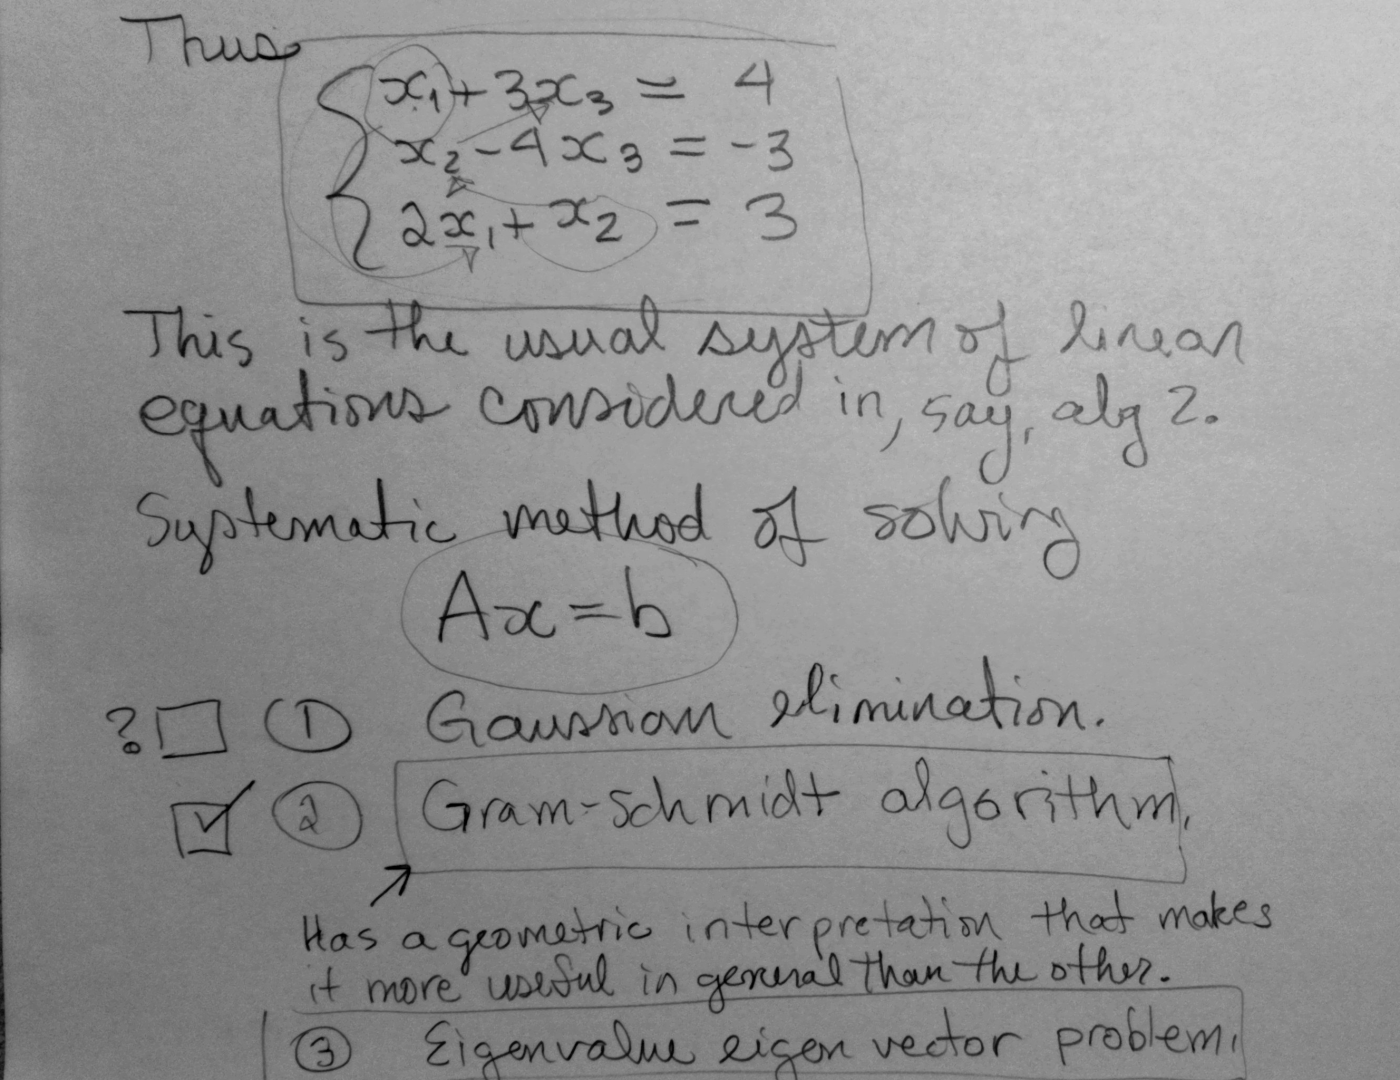 Thus
x₁ + 3x₃ = 4
x₂ - 4x₃ = -3
2x₁ + x₂ = 3
This is the usual system of linear
equations considered in, say, alg 2.
Systematic method of solving
Ax = b
? ① Gaussian elimination.
② Gram-Schmidt algorithm.
Has a geometric interpretation that makes
it more useful in general than the other.
③ Eigenvalue eigen vector problem.